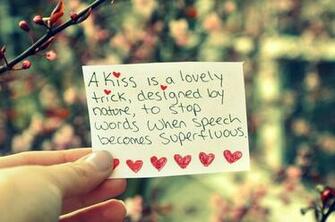 A Kiss is a lovely
trick, designed by
nature, to stop
words when speech
becomes superfluous.